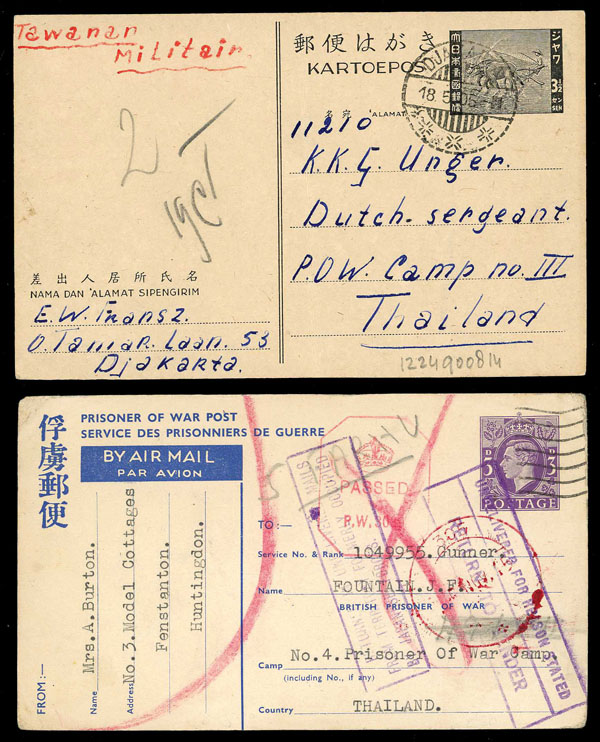 Tawanan
Militair
郵便はがき
KARTOEPOS
ジャワ
大日本帝国郵便
3½
センSEN
18.5.05
名宛 'ALAMAT
11210
K.K.G. Unger.
Dutch-sergeant.
P.O.W. Camp no. III
Thailand
差出人居所氏名
NAMA DAN 'ALAMAT SIPENGIRIM
E.W. Fransz.
O. Tamar. Laan. 53
Djakarta.
1224900814
俘虜郵便
PRISONER OF WAR POST
SERVICE DES PRISONNIERS DE GUERRE
BY AIR MAIL
PAR AVION
3D 3D
POSTAGE
PASSED
P.W.
TO:—
Service No. & Rank 1049955. Gunner.
Name FOUNTAIN. J.
BRITISH PRISONER OF WAR
Camp No.4. Prisoner Of War Camp.
(including No., if any)
Country THAILAND.
FROM:—
Name Mrs.A.Burton.
Address No.3.Model Cottages
Fenstanton.
Huntingdon.
UNDELIVERED FOR REASON STATED
RETURN TO SENDER